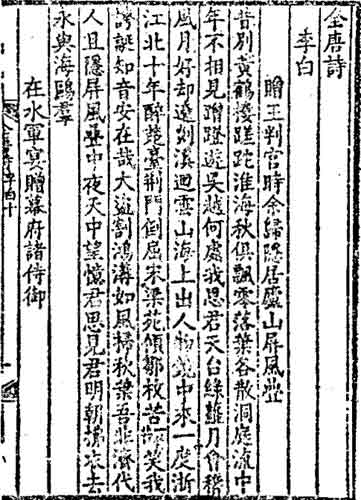 全唐詩
李白
贈王判官時余歸隱居廬山屏風疊
昔別黃鶴樓蹉跎淮海秋俱飄零落葉各散洞庭流中
年不相見蹭蹬遊吳越何處我思君天台綠蘿月會稽
風月好却遶剡溪迴雲山海上出人物鏡中來一度浙
江北十年醉楚臺荊門倒屈宋梁苑傾鄒枚苦笑我
誇誕知音安在哉大盜割鴻溝如風掃秋葉吾非濟代
人且隱屏風疊中夜天中望憶君思見君明朝拂衣去
永與海鷗羣
在水軍宴贈幕府諸侍御